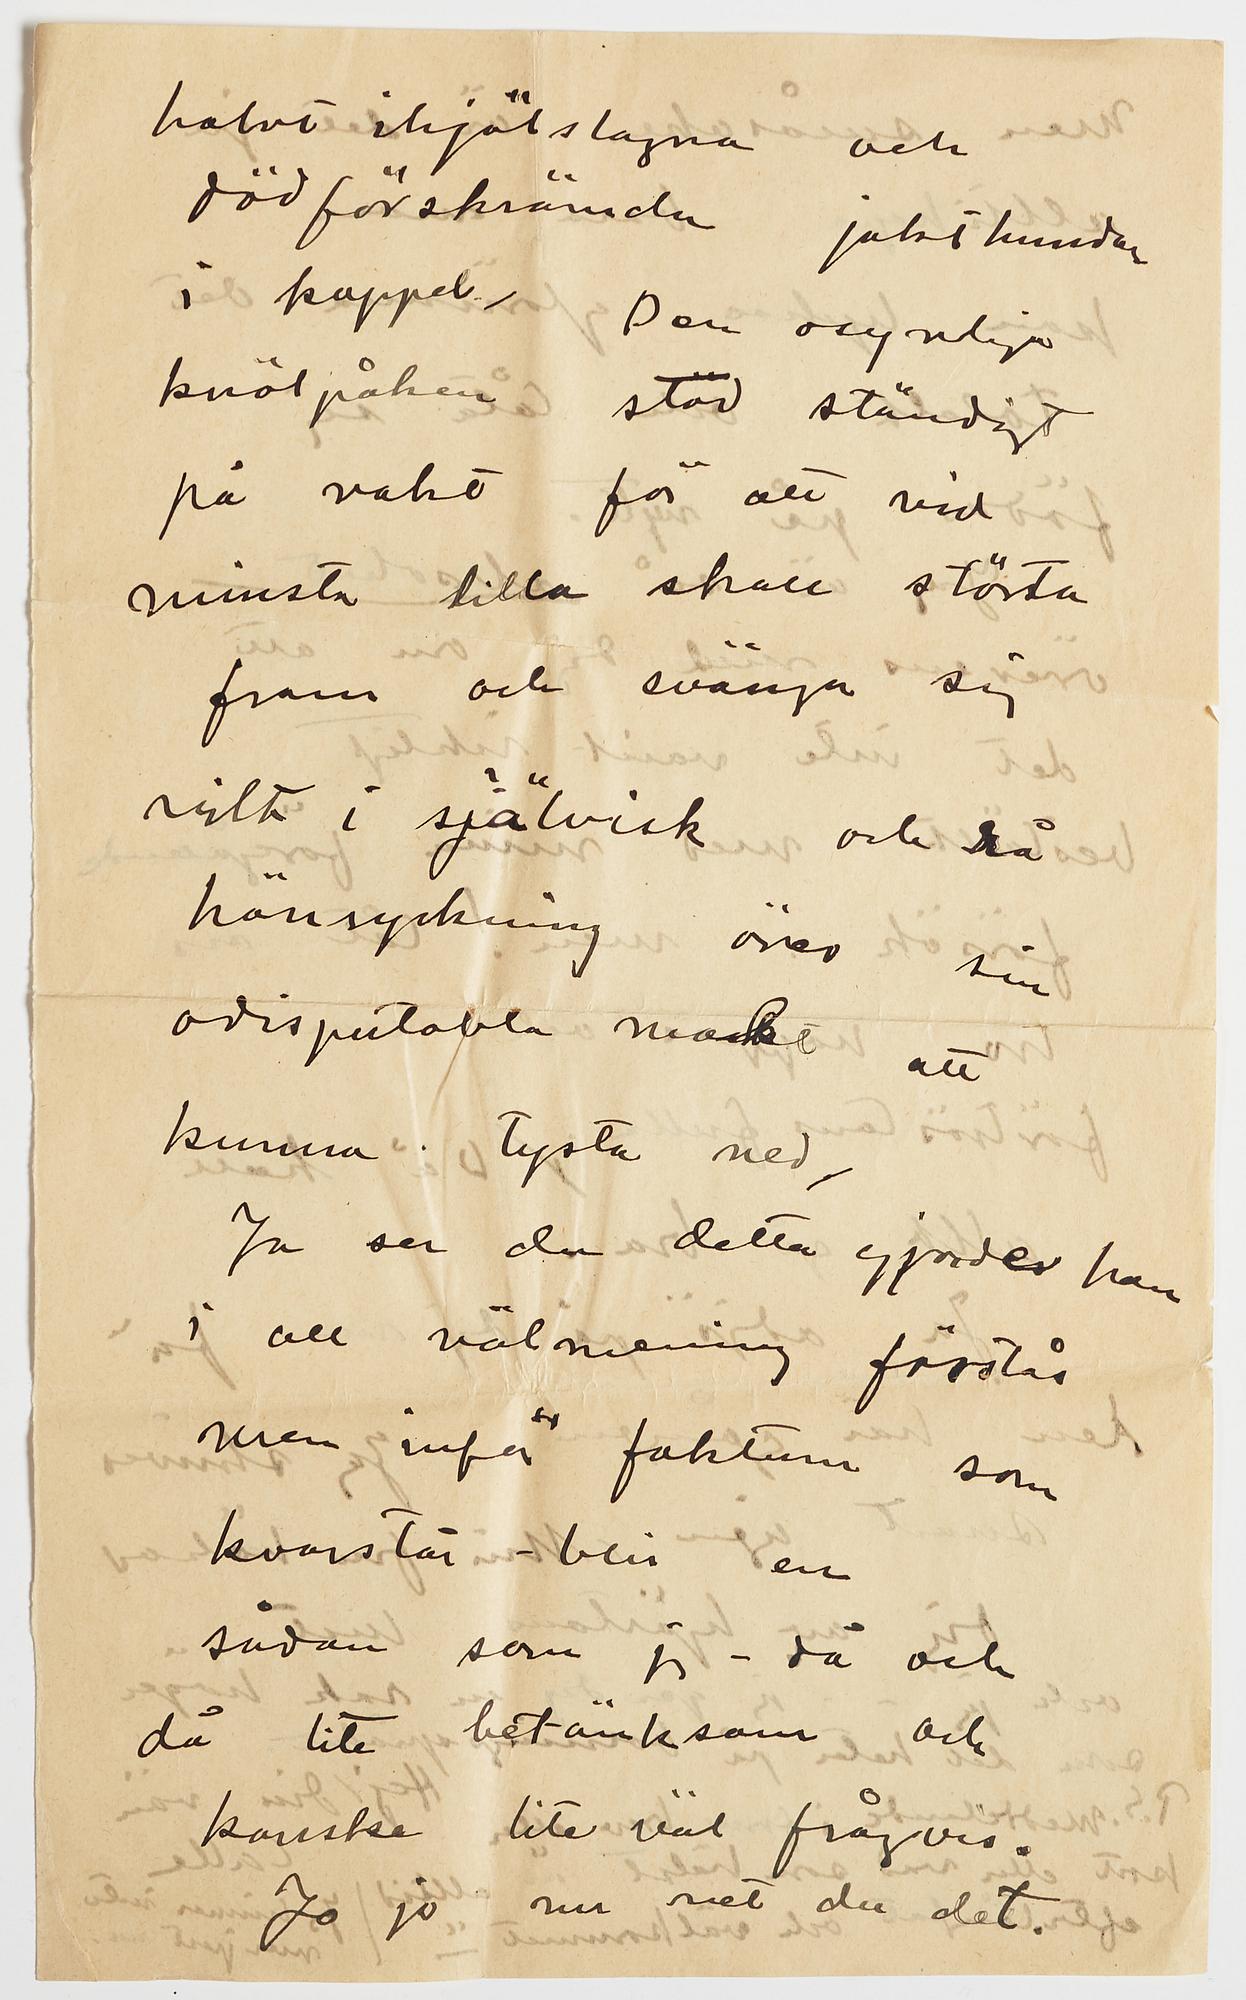 halvt ihjälslagna och
dödförskrämda jakthundar
i koppel, Den osynliga
knölpåken stod ständigt
på vakt för att vid
minsta lilla skall störta
fram och svänga sig
vilt i självisk och rå
hänryckning över sin
odisputabla makt att
kunna tysta ned,
Ja ser du detta gjordes han
i all välmening förstås
men inför faktum som
kvarstår – blir en
sådan som jg – då och
då lite betänksam och
kanske lite väl frågvis.
Jo jo nu vet du det.